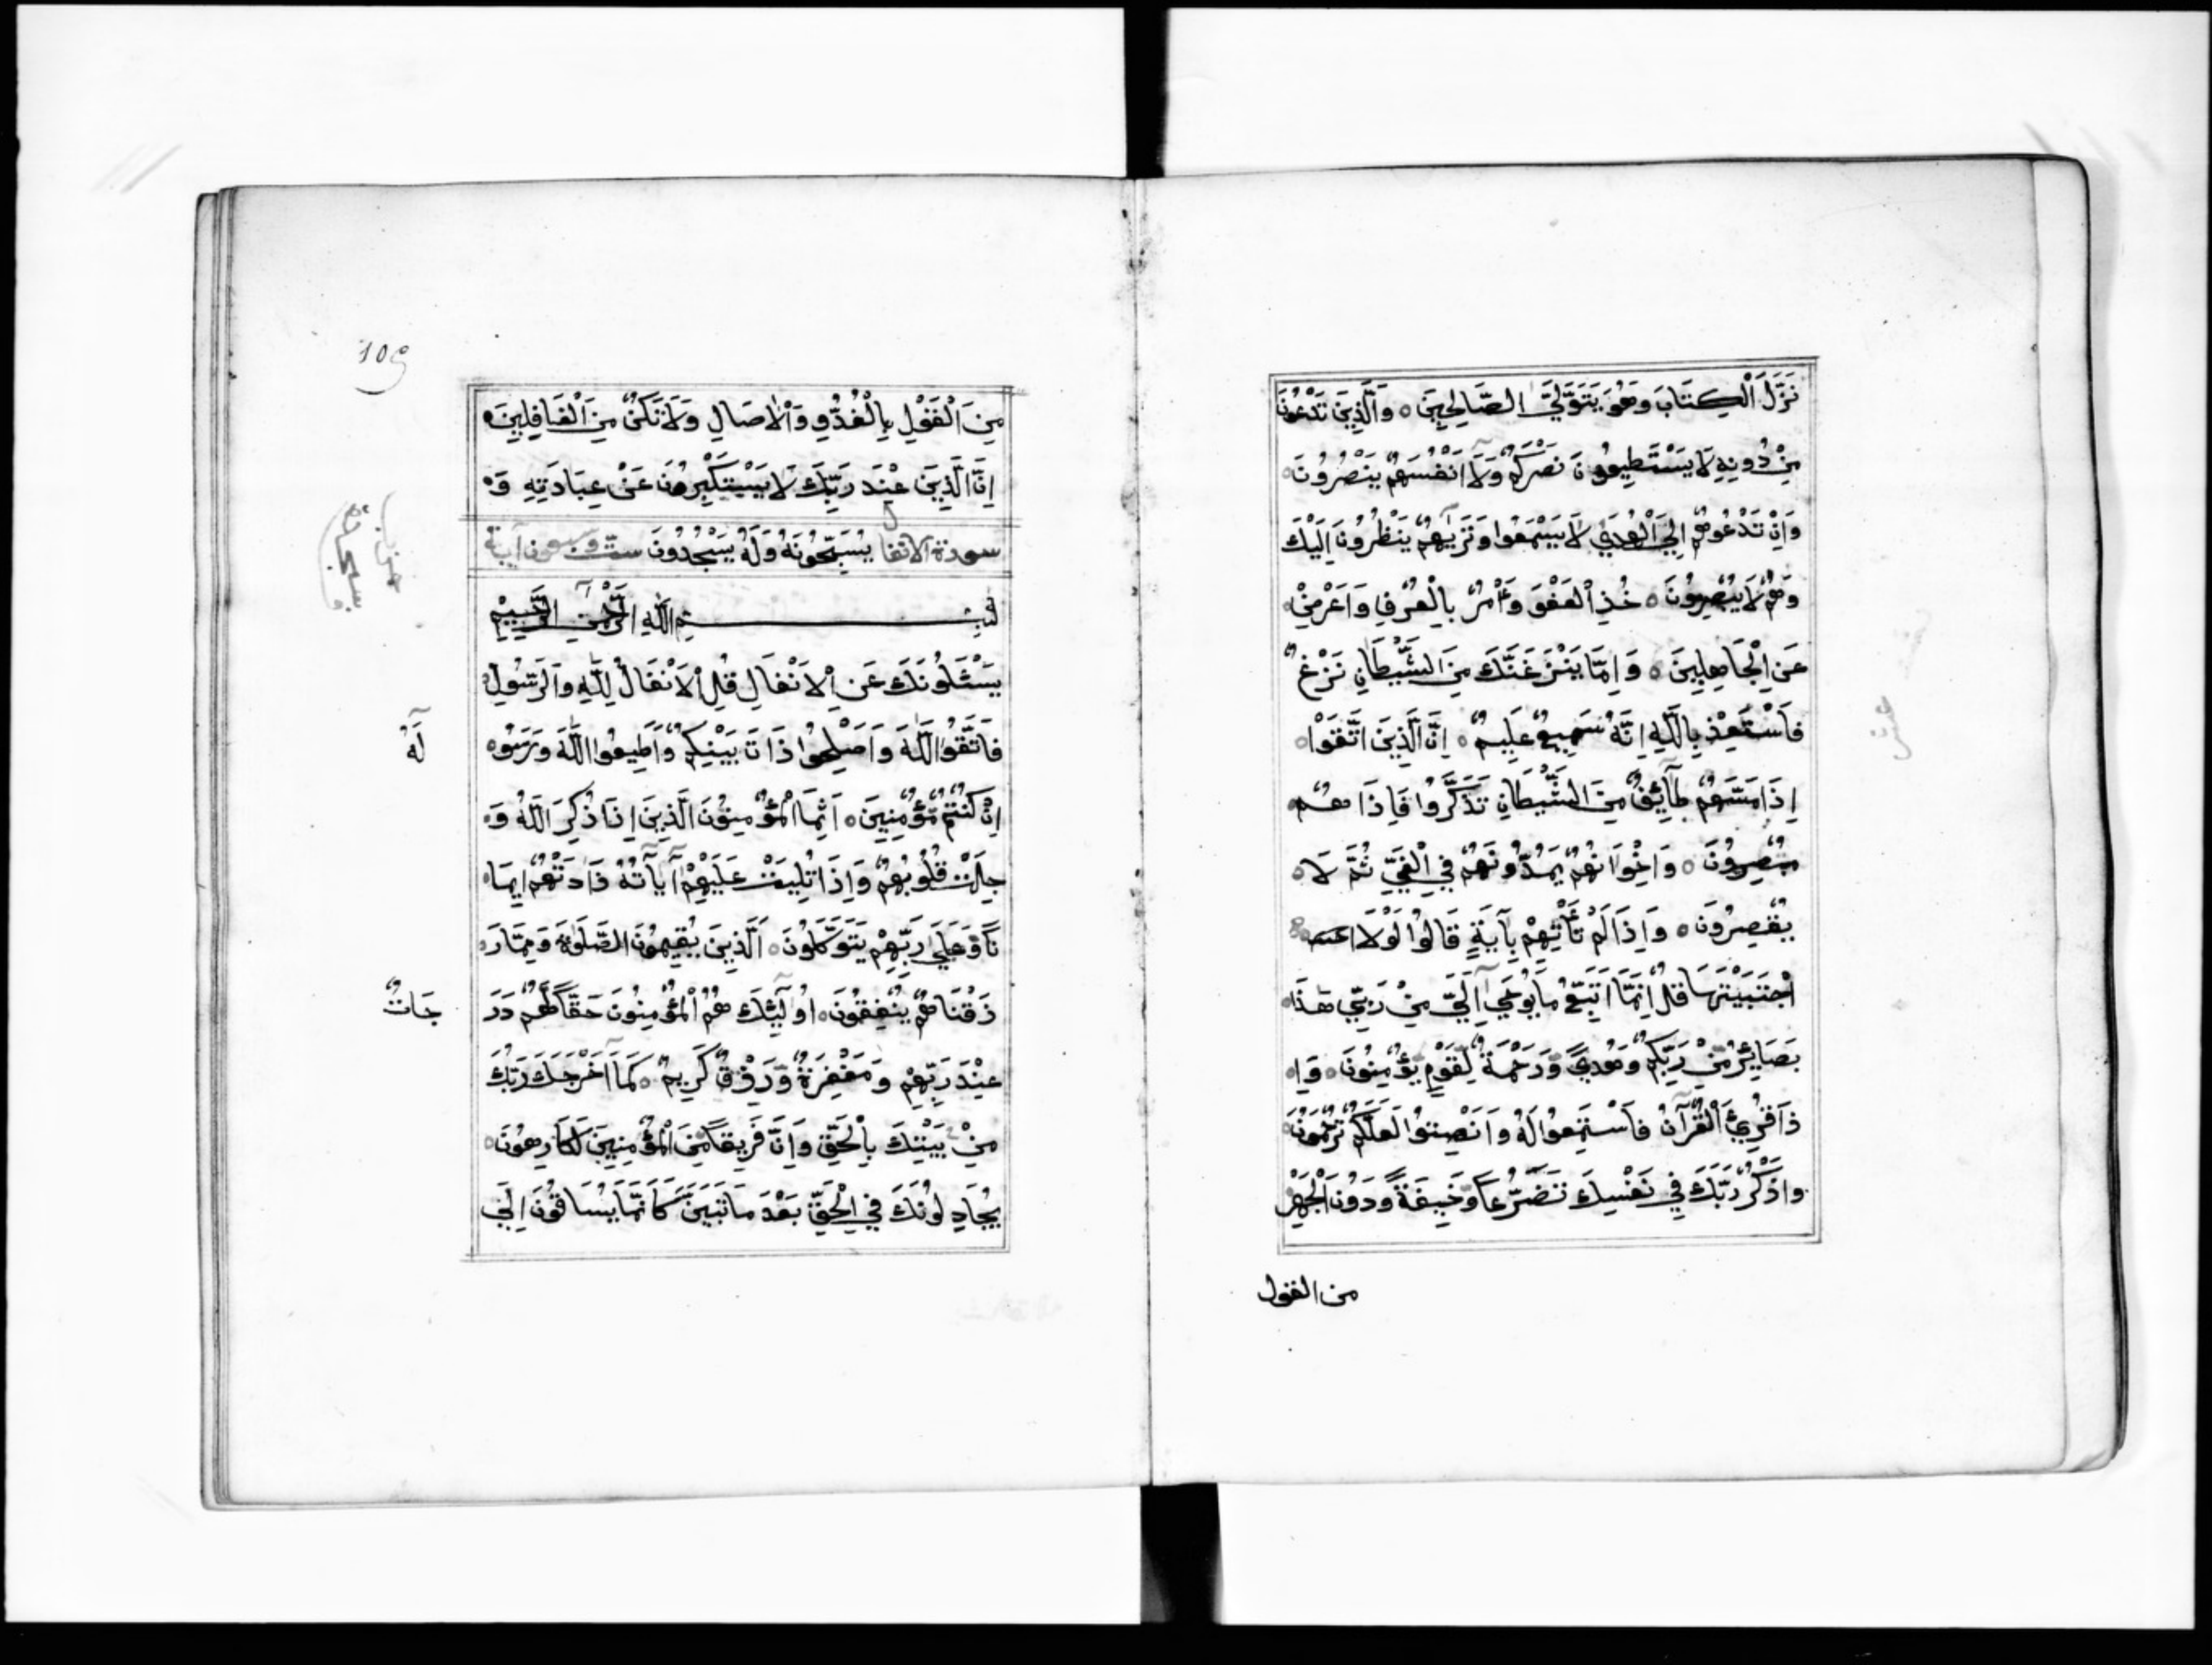 نَزَّلَ الْكِتَابَ وَهُوَ يَتَوَلَّيَ الصَّالِحِينَ ۝ وَالَّذِينَ تَدْعُونَ
مِنْ دُونِهِ لَا يَسْتَطِيعُونَ نَصْرَكُمْ وَلَآ اَنْفُسَهُمْ يَنْصُرُونَ
وَاِنْ تَدْعُوهُمْ اِلَى الْهُدَي لَا يَسْمَعُوا وَتَرَيٰهُمْ يَنْظُرُونَ اِلَيْكَ
وَهُمْ لَا يُبْصِرُونَ ۝ خُذِ الْعَفْوَ وَأْمُرْ بِالْعُرْفِ وَاَعْرِضْ
عَنِ الْجَاهِلِينَ ۝ وَاِمَّا يَنْزَغَنَّكَ مِنَ الشَّيْطَانِ نَزْغٌ
فَاسْتَعِذْ بِاللّٰهِ اِنَّهُ سَمِيعٌ عَلِيمٌ ۝ اِنَّ الَّذِينَ اتَّقَوْا
اِذَا مَسَّهُمْ طَآئِفٌ مِنَ الشَّيْطَانِ تَذَكَّرُوا فَاِذَا هُمْ
مُبْصِرُونَ ۝ وَاِخْوَانُهُمْ يَمُدُّونَهُمْ فِي الْغَيِّ ثُمَّ لَا
يُقْصِرُونَ ۝ وَاِذَا لَمْ تَأْتِهِمْ بِآيَةٍ قَالُوا لَوْلَا
اجْتَبَيْتَهَا قُلْ اِنَّمَا اَتَّبِعُ مَا يُوحَيٰ اِلَيَّ مِنْ رَبِّي هٰذَا
بَصَايِئرُ مِنْ رَبِّكُمْ وَهُديً وَرَحْمَةٌ لِقَوْمٍ يُؤْمِنُونَ ۝ وَاِ
ذَا قُرِئَ الْقُرْآنُ فَاسْتَمِعُوا لَهُ وَاَنْصِتُوا لَعَلَّكُمْ تُرْحَمُونَ
وَاذْكُرْ رَبَّكَ فِي نَفْسِكَ تَضَرُّعًا وَخِيفَةً وَدُونَ الْجَهْرِ
من القول
109
مِنَ الْقَوْلِ بِالْغُدُوِّ وَالْاٰصَالِ وَلَا تَكُنْ مِنَ الْغَافِلِينَ
اِنَّ الَّذِينَ عِنْدَ رَبِّكَ لَا يَسْتَكْبِرُونَ عَنْ عِبَادَتِهِ وَ
سورة الانفال يُسَبِّحُونَهُ وَلَهُ يَسْجُدُونَ ست وسبعون آية
بِسْمِ اللّٰهِ الرَّحْمٰنِ الرَّحِيمِ
يَسْئَلُونَكَ عَنِ الْاَنْفَالِ قُلِ الْاَنْفَالُ لِلّٰهِ وَالرَّسُولِ
فَاتَّقُوا اللّٰهَ وَاَصْلِحُوا ذَاتَ بَيْنِكُمْ وَاَطِيعُوا اللّٰهَ وَرَسُو
لَهُٓ
اِنْ كُنْتُمْ مُؤْمِنِينَ ۝ اِنَّمَا الْمُؤْمِنُونَ الَّذِينَ اِذَا ذُكِرَ اللّٰهُ وَ
جِلَتْ قُلُوبُهُمْ وَاِذَا تُلِيَتْ عَلَيْهِمْ آيَآتُهُ زَادَتْهُمْ اِيمَا
نًا وَعَلَيٰ رَبِّهِمْ يَتَوَكَّلُونَ ۝ اَلَّذِينَ يُقِيمُونَ الصَّلٰوةَ وَمِمَّا رَ
زَقْنَاهُمْ يُنْفِقُونَ ۝ اُولٓئِكَ هُمُ الْمُؤْمِنُونَ حَقًّا لَهُمْ دَرَ
جَاتٌ
عِنْدَ رَبِّهِمْ وَمَغْفِرَةٌ وَرِزْقٌ كَرِيمٌ ۝ كَمَآ اَخْرَجَكَ رَبُّكَ
مِنْ بَيْتِكَ بِالْحَقِّ وَاِنَّ فَرِيقًا مِنَ الْمُؤْمِنِينَ لَكَارِهُونَ
يُجَادِلُونَكَ فِي الْحَقِّ بَعْدَ مَا تَبَيَّنَ كَاَنَّمَا يُسَاقُونَ اِلَي